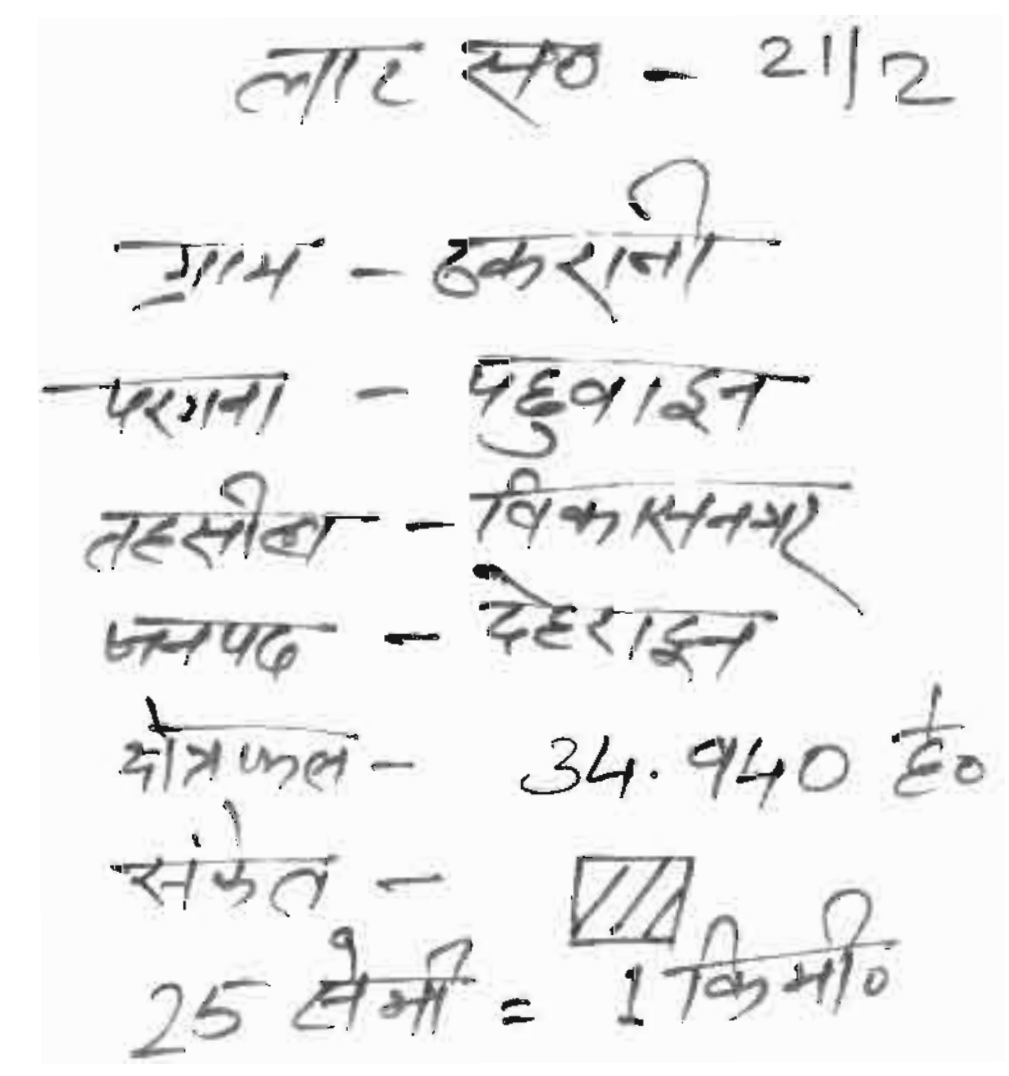 लाट सं० - 21/2
ग्राम - ढकरानी
परगना - पछुवादून
तहसील - विकासनगर
जनपद - देहरादून
क्षेत्रफल - 34.940 है०
संकेत -
25 सेमी = 1 किमी०